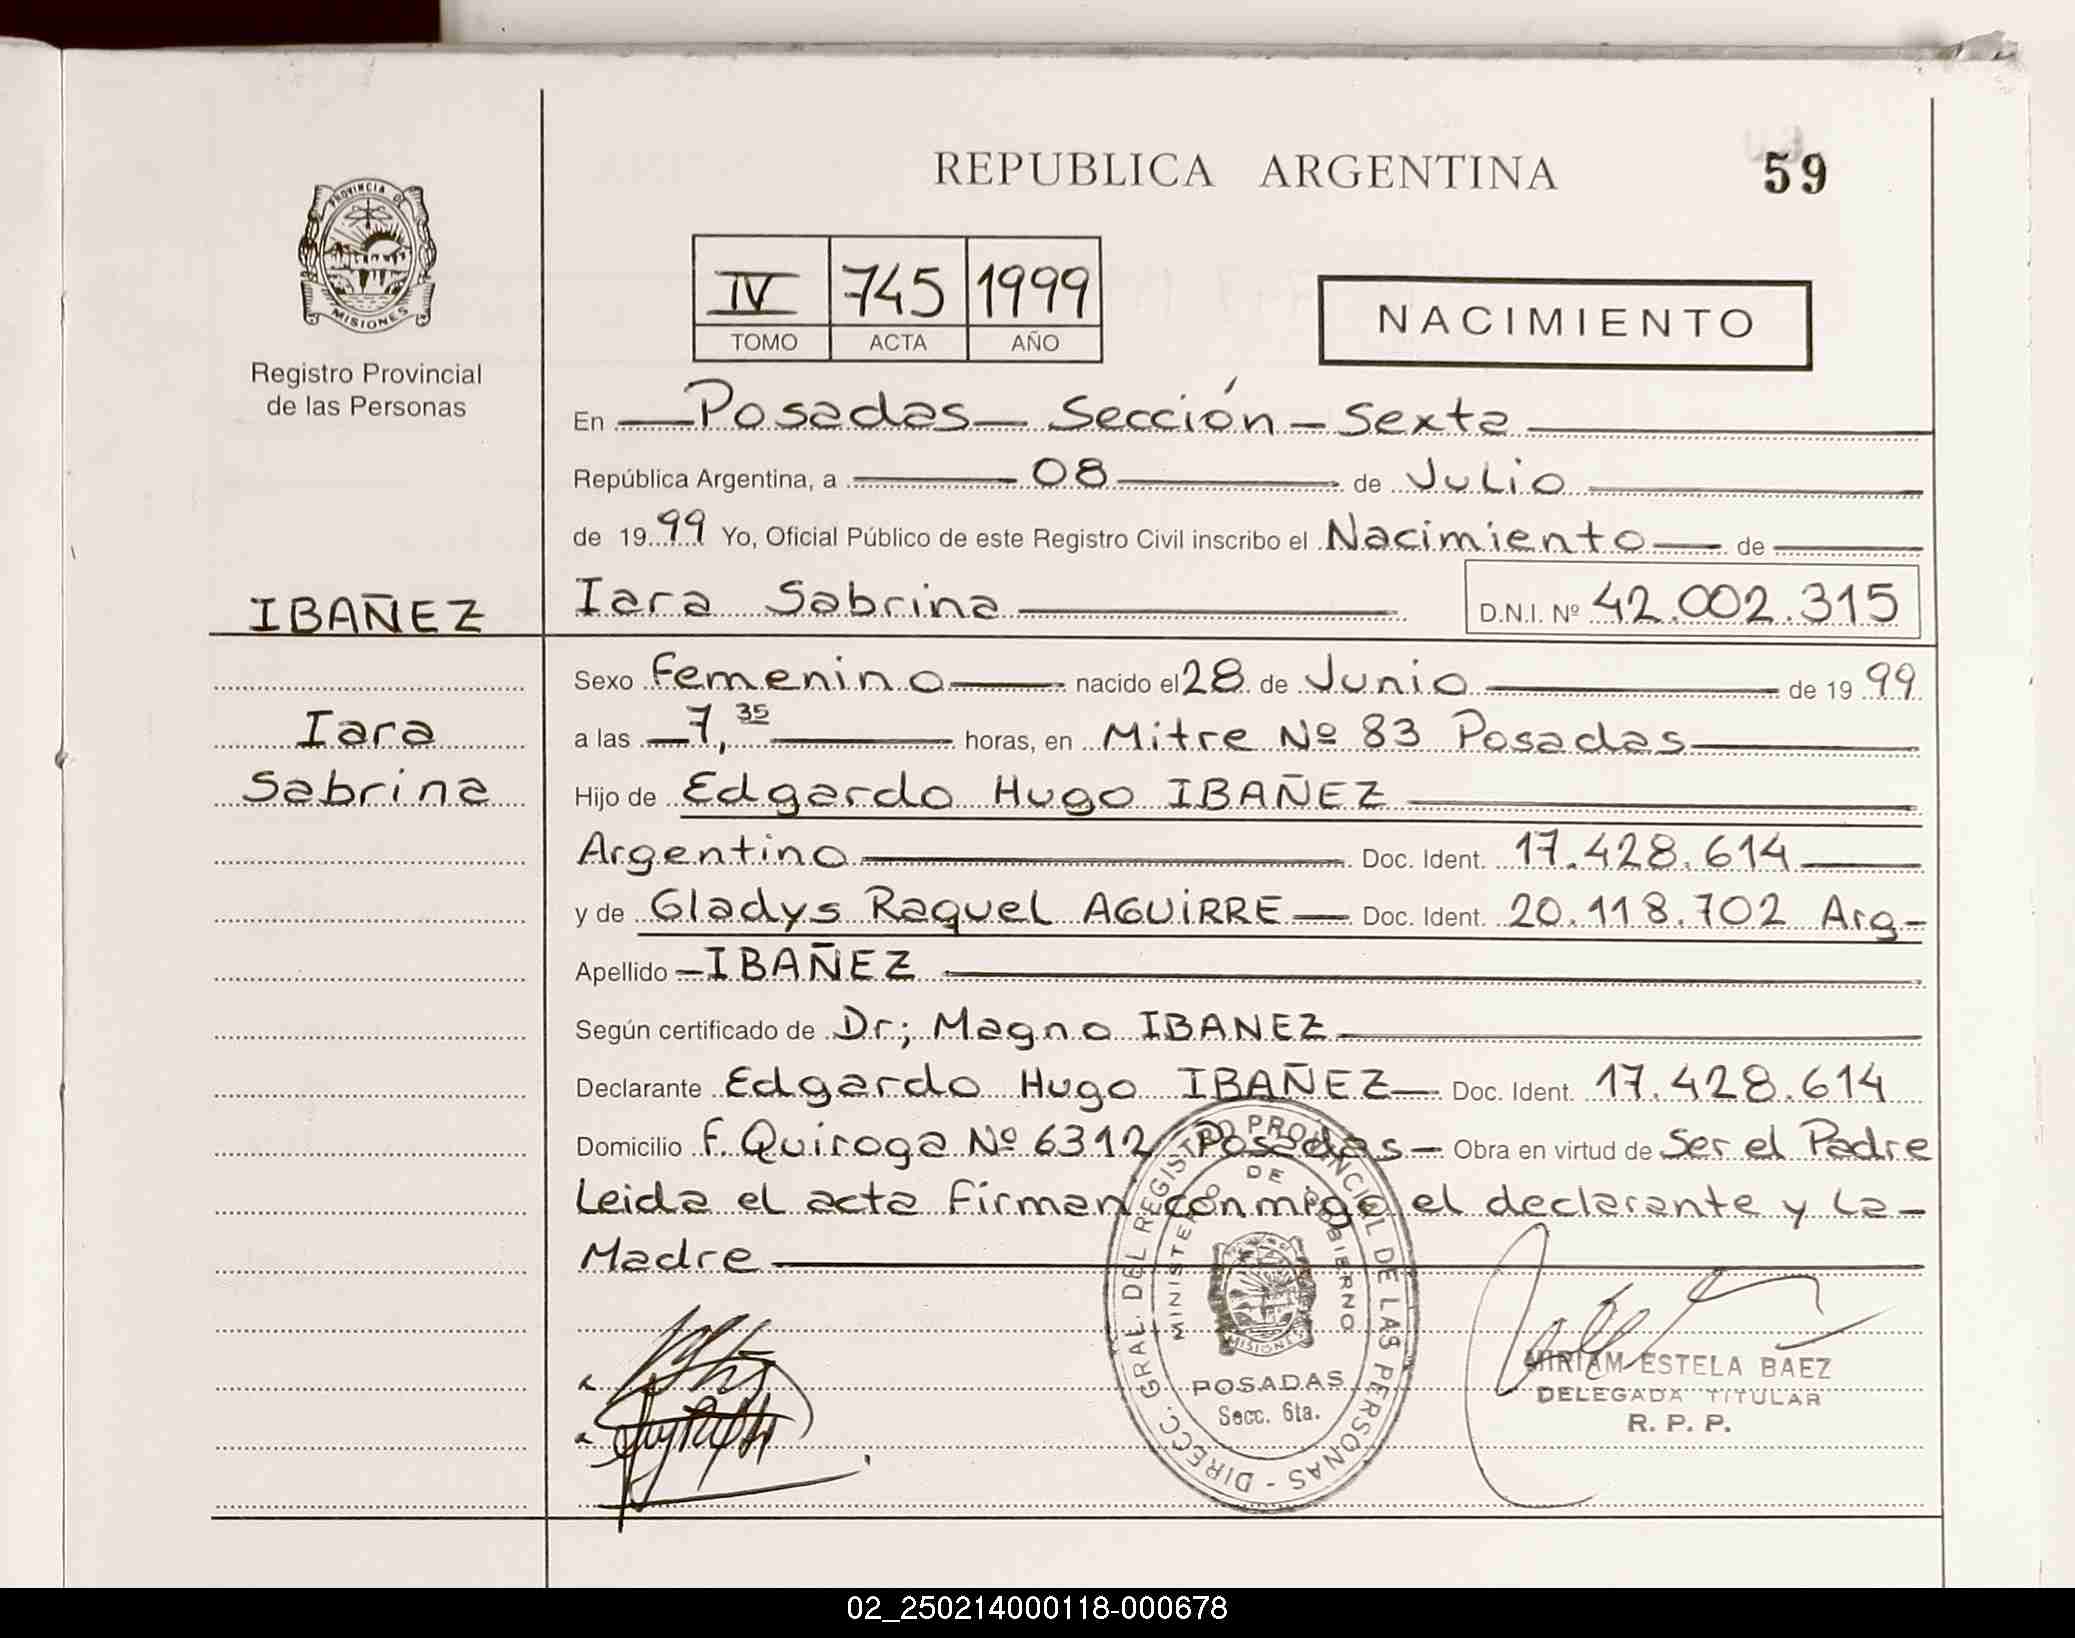 REPUBLICA ARGENTINA
59
PROVINCIA DE
MISIONES
Registro Provincial
de las Personas
IV 745 1999
TOMO ACTA AÑO
NACIMIENTO
En Posadas Sección Sexta
República Argentina, a 08 de Julio
de 1999 Yo, Oficial Público de este Registro Civil inscribo el Nacimiento de
IBAÑEZ
Iara Sabrina D.N.I. Nº 42.002.315
Sexo Femenino nacido el 28 de Junio de 1999
Iara
Sabrina
a las 7,35 horas, en Mitre Nº 83 Posadas
Hijo de Edgardo Hugo IBAÑEZ
Argentino Doc. Ident. 17.428.614
y de Gladys Raquel AGUIRRE Doc. Ident. 20.118.702 Arg-
Apellido IBAÑEZ
Según certificado de Dr; Magno IBANEZ
Declarante Edgardo Hugo IBAÑEZ Doc. Ident. 17.428.614
Domicilio F. Quiroga Nº 6312 Posadas Obra en virtud de Ser el Padre
Leida el acta firman conmigo el declarante y La-
Madre
DIRECC. GRAL. DEL REGISTRO PROVINCIAL DE LAS PERSONAS -
MINISTERIO DE GOBIERNO
MISIONES
POSADAS
Secc. 6ta.
MIRIAM ESTELA BAEZ
DELEGADA TITULAR
R. P. P.
02_250214000118-000678